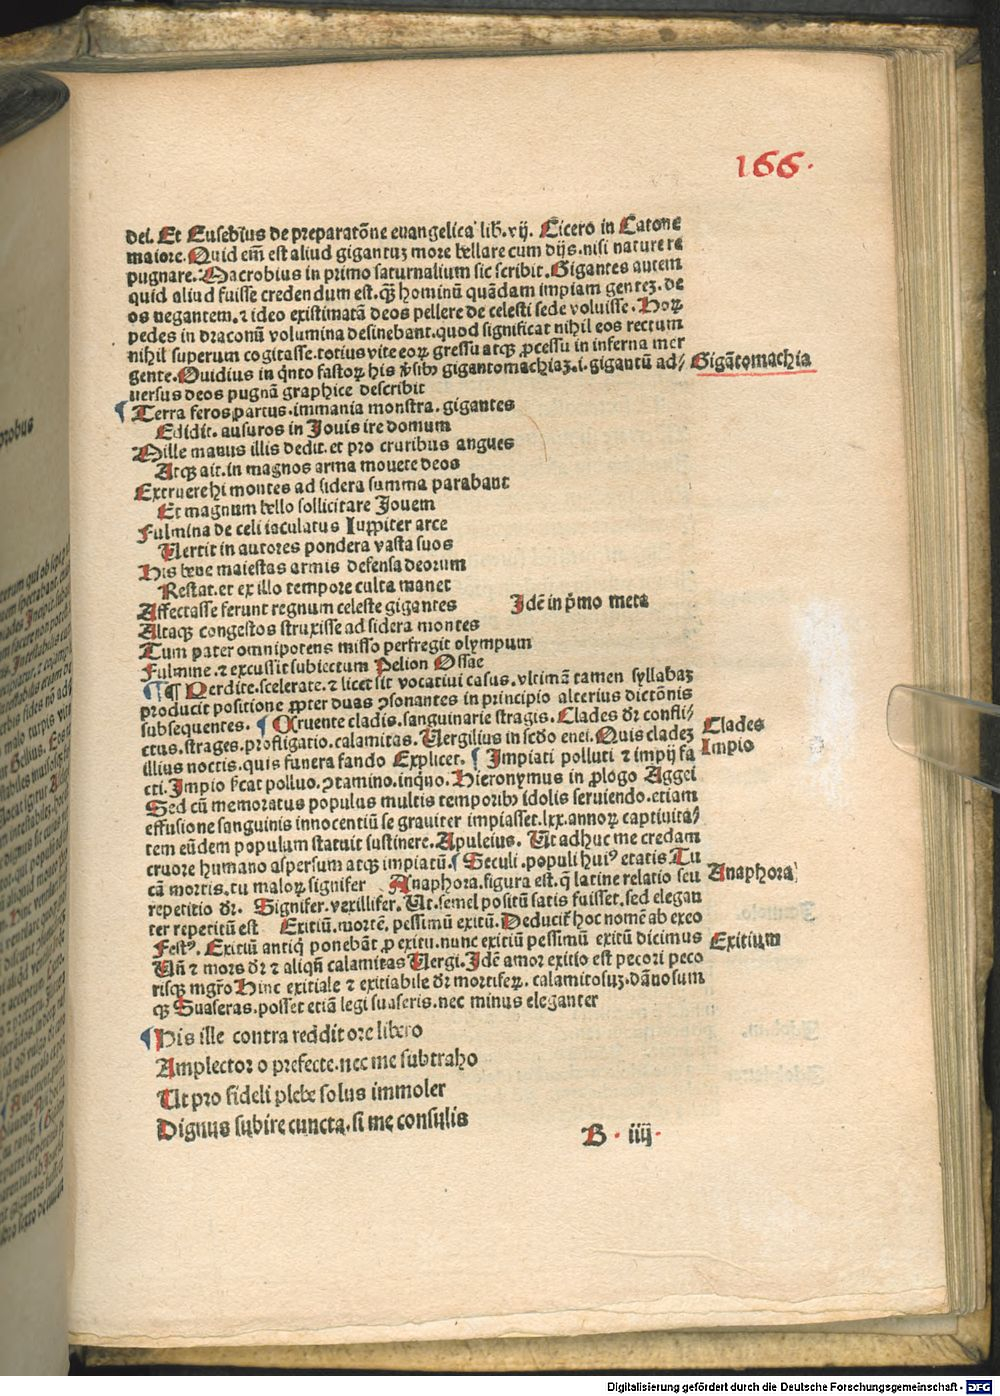 166.
dei. Et Eusebius de preparatõne euangelica lib̃. vij. Cicero in Catone
maiore. Quid em̃ est aliud gigantuꝫ more bellare cum dijs. nisi nature re
pugnare. Macrobius in primo saturnalium sic scribit. Gigantes autem
quid aliud fuisse credendum est. q̃ꝫ hominũ quãdam impiam genteꝫ. de
os negantem. ⁊ ideo existimatã deos pellere de celesti sede voluisse. Hoꝝ
pedes in draconũ volumina desinebant. quod significat nihil eos rectum
nihil superum cogitasse. totius vite eoꝝ gressu atqꝫ ꝓcessu in inferna mer
gente. Ouidius in q̃nto fastoꝝ his v̾sibꝰ gigantomachiaꝫ. i. gigantũ ad/
Gigãtomachia
uersus deos pugnã graphice describit
¶ Terra feros partus. immania monstra. gigantes
Edidit. ausuros in Jouis ire domum
Mille manus illis dedit. et pro cruribus angues
Atqꝫ ait. in magnos arma mouete deos
Extruere hi montes ad sidera summa parabant
Et magnum bello sollicitare Jouem
Fulmina de celi iaculatus Iuppiter arce
Uertit in autores pondera vasta suos
His bene maiestas armis defensa deorum
Restat. et ex illo tempore culta manet
Affectasse ferunt regnum celeste gigantes
Jdẽ in p̃mo meta
Altaqꝫ congestos struxisse ad sidera montes
Tum pater omnipotens misso perfregit olympum
Fulmine. ⁊ excussit subiectum Pelion Ossae
¶ ¶ Perdite. scelerate. ⁊ licet sit vocatiui casus. vltimã tamen syllabaꝫ
producit positione ꝓpter duas ꝯsonantes in principio alterius dictõnis
subsequentes. ¶ Cruente cladis. sanguinarie stragis. Clades dr̃ confli/
Clades
ctus. strages. profligatio. calamitas. Uergilius in scđo enei. Quis cladeꝫ
Impio
illius noctis. quis funera fando Explicet. ¶ Impiati polluti ⁊ impij fa
cti. Impio ſ̾cat polluo. ꝯtamino. inqno. Hieronymus in ꝓlogo Aggei
Sed cũ memoratus populus multis temporibꝰ idolis seruiendo. etiam
effusione sanguinis innocentiũ se grauiter impiasset. lxx. annoꝝ captiuita/
tem eũdem populum statuit sustinere. Apuleius. Ut adhuc me credam
cruore humano aspersum atqꝫ impiatũ. ¶ Seculi. populi huiꝰ etatis Tu
cã mortis. tu maloꝝ signifer Anaphora. figura est. q̃ latine relatio seu
Anaphora
repetitio dr̃. Signifer. vexillifer. Ut. semel positũ satis fuisset. sed elegan
ter repetitũ est Exitiũ. mortẽ. pessimũ exitũ. Deducit̃ hoc nomẽ ab exeo
Festꝰ. Exitiũ antiq̃ ponebãt ꝓ exitu. nunc exitiũ pessimũ exitũ dicimus
Exitium
Uñ ⁊ mors dr̃ ⁊ aliqñ calamitas Uergi. Jdẽ amor exitio est pecori peco
risqꝫ mg̃ro Hinc exitiale ⁊ exitiabile dr̃ mortifeꝝ. calamitosuꝫ. dãnosum
qꝫ Suaseras. posset etiã legi suaseris. nec minus eleganter
¶ His ille contra reddit ore libero
Amplector o prefecte. nec me subtraho
Ut pro fideli plebe solus immoler
Dignus subire cuncta. si me consulis
B. iiij.
Digitalisierung gefördert durch die Deutsche Forschungsgemeinschaft - DFG